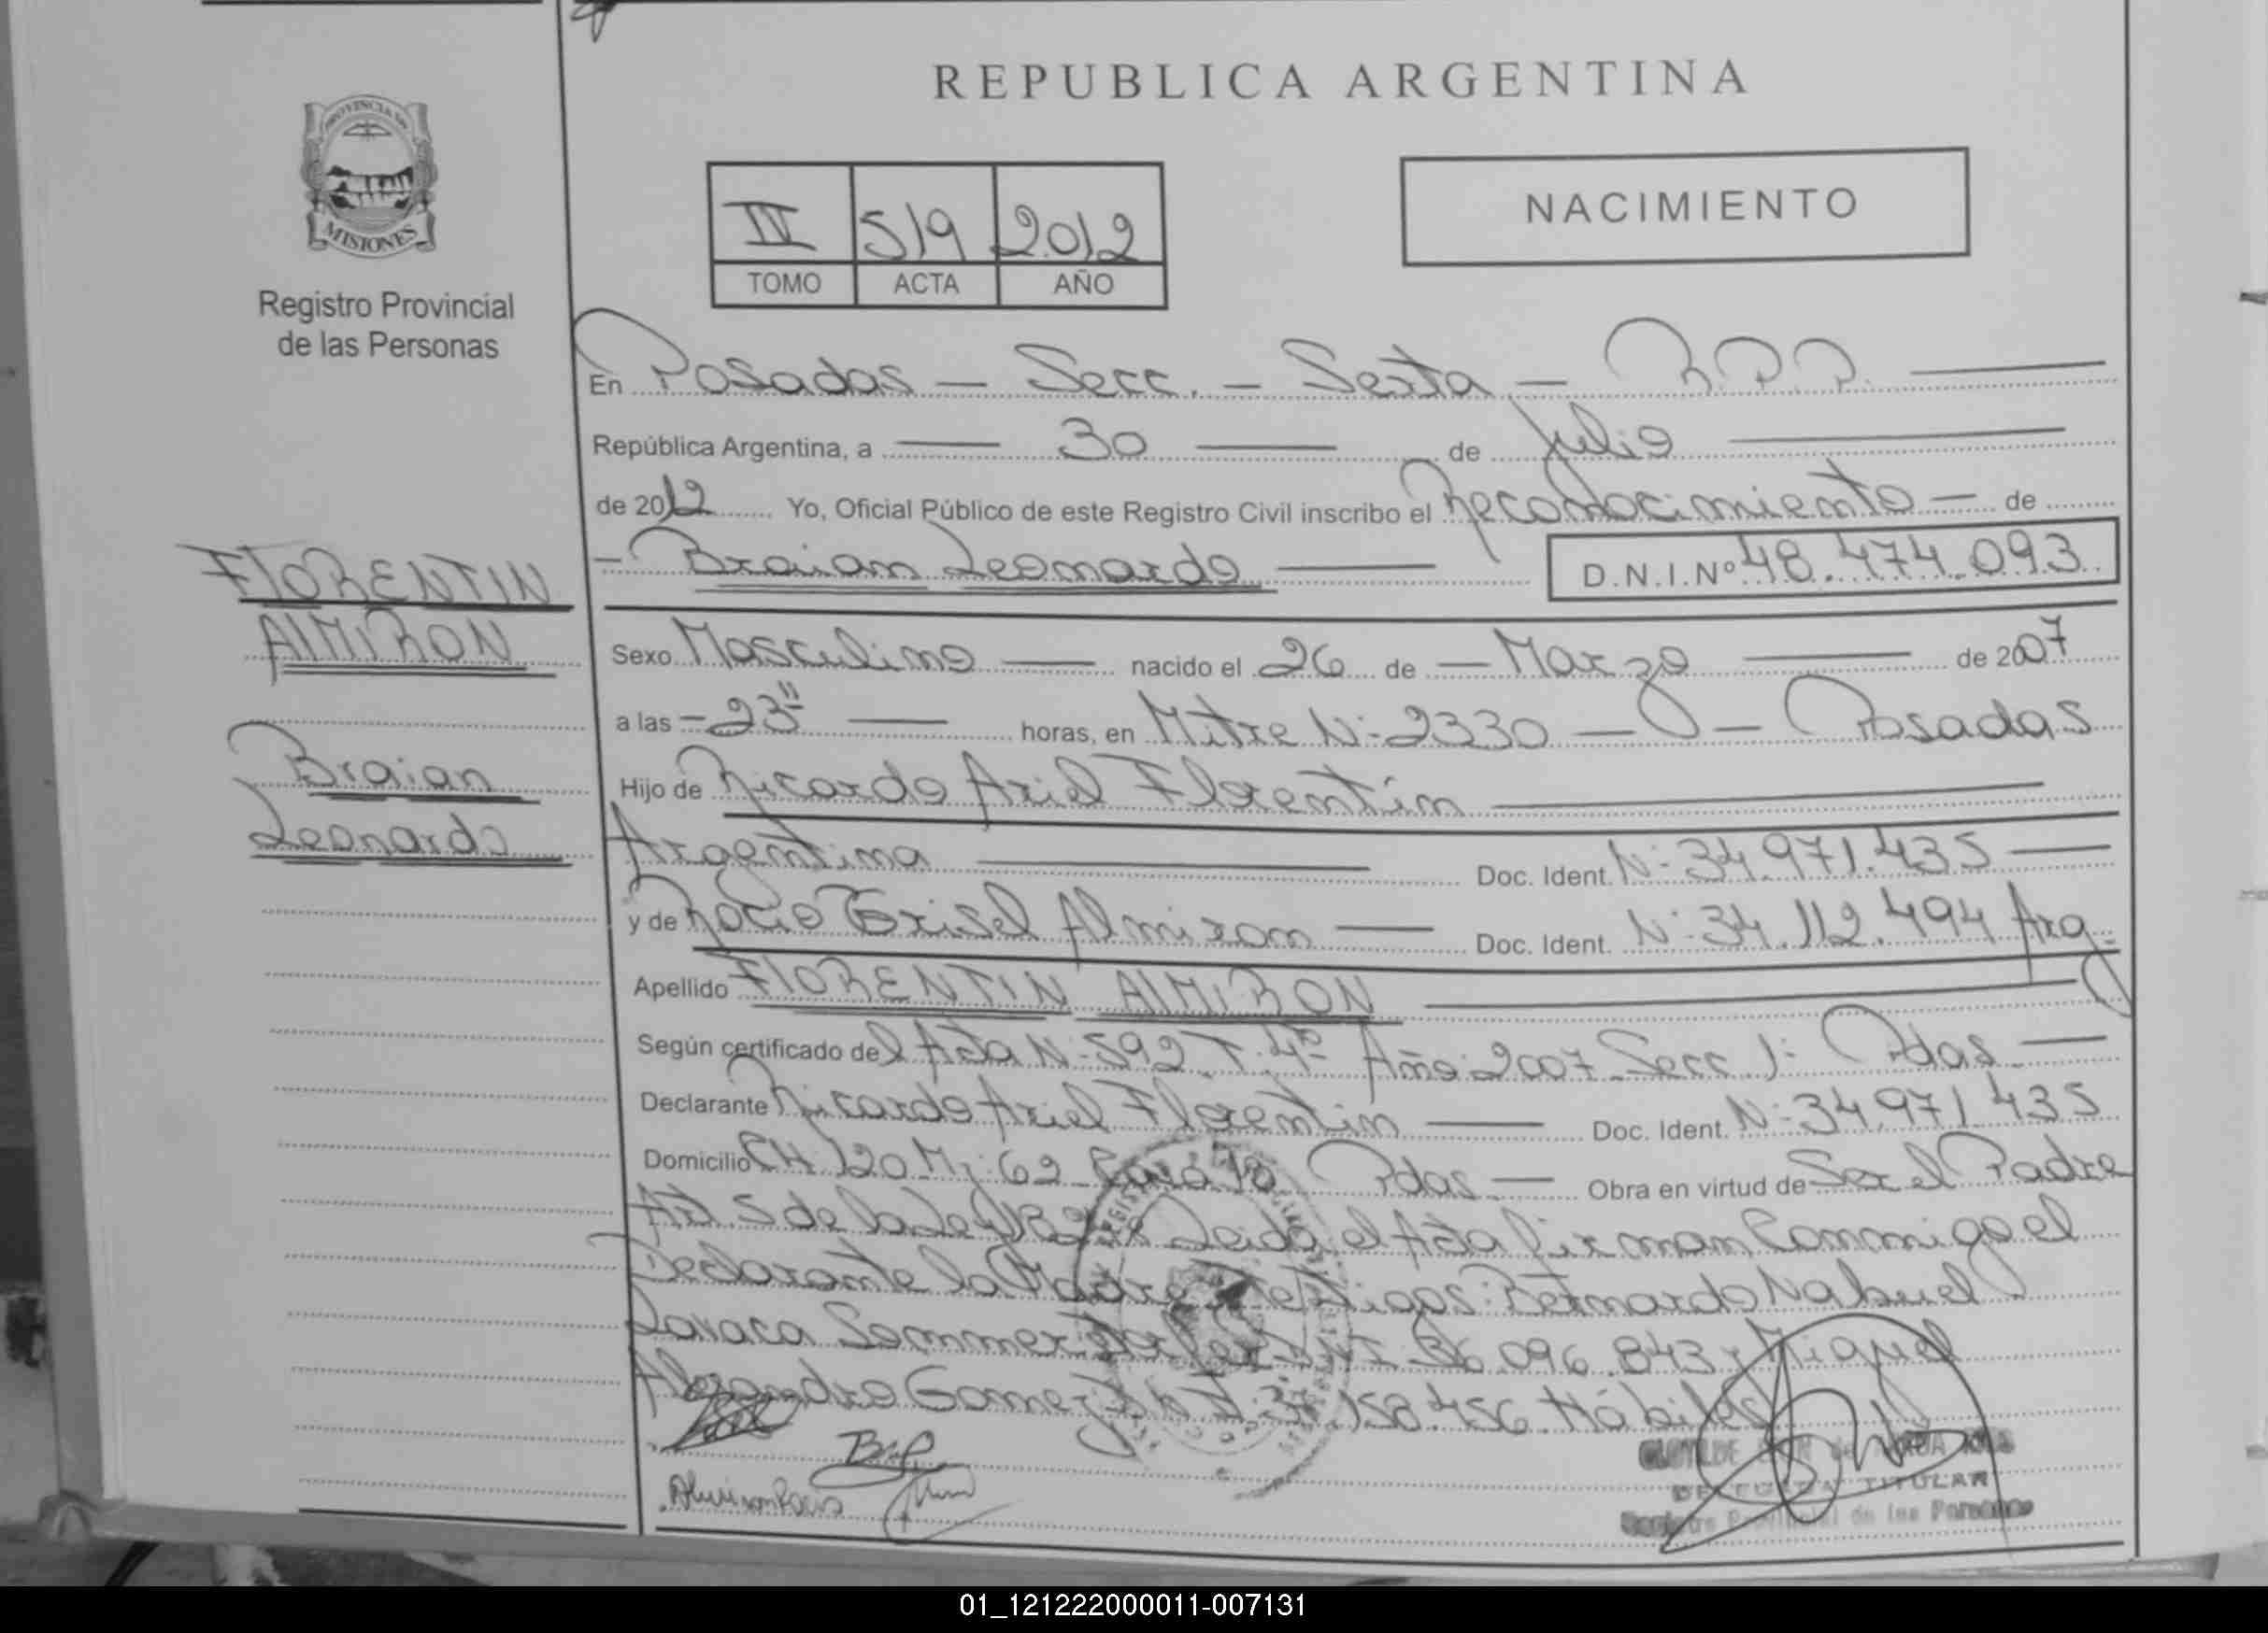 REPUBLICA ARGENTINA
PROVINCIA DE
MISIONES
Registro Provincial
de las Personas
NACIMIENTO
IV 519 2012
TOMO ACTA AÑO
En Posadas - Secc. - Sexta - R.P.P.
República Argentina, a 30 de Julio
de 2012 Yo, Oficial Público de este Registro Civil inscribo el Reconocimiento - de
- Braian Leonardo D.N.I.Nº 48.474.093
FLORENTIN
ALMIRON
Braian
Leonardo
Sexo Masculino nacido el 26 de - Marzo de 2007
a las - 23 horas, en Mitre N: 2330 - Posadas
Hijo de Ricardo Ariel Florentin
Argentina Doc. Ident. N: 34.971.435
y de Rocio Grisel Almiron Doc. Ident. N: 34.112.494 Arg.
Apellido FLORENTIN ALMIRON
Según certificado del Acta N: 592 T. 4º Año: 2007 Secc 1: Pdas
Declarante Ricardo Ariel Florentin Doc. Ident. N: 34.971.435
Domicilio CH 120 Mz: 62 Casa 18 Pdas. Obra en virtud de Ser el Padre
Art 5 de la Ley Leida el Acta firman Conmigo el
Declarante la Madre Testigos: Bernardo Nahuel
Sommer 36.096.843 y Miguel
Alejandro Gomez 37.158.456. Hábiles
Almiron Rocio
TITULAR
Registro Provincial de las Personas
01_121222000011-007131